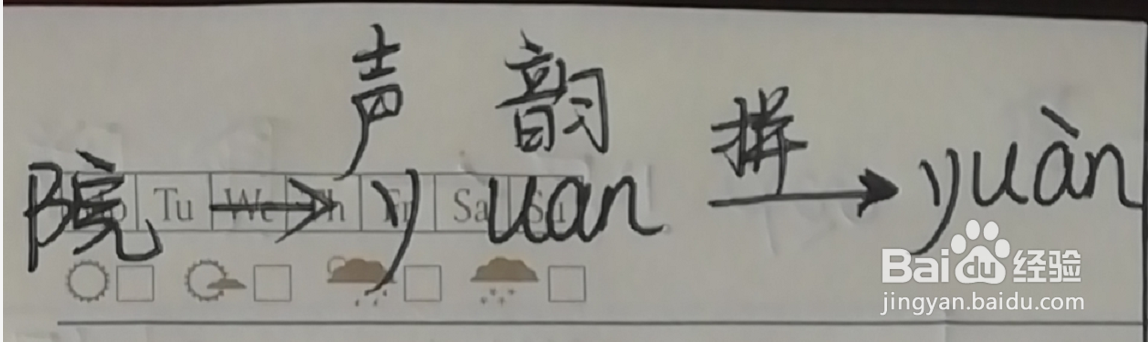 声 韵 拼
院 → y uan → yuàn
Tu We Th Fr Sa Su
Baidu 经验
jingyan.baidu.com